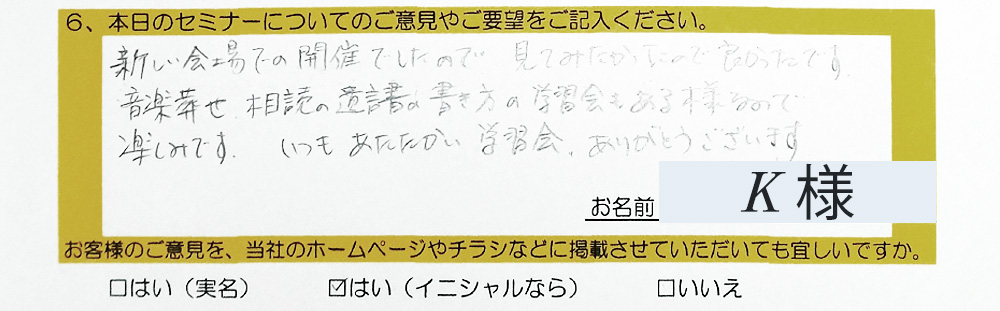 6、本日のセミナーについてのご意見やご要望をご記入ください。
新しい会場での開催でしたので 見てみたかったので良かったです。
音楽葬せ、相続の遺言書の書き方の学習会もある様なので
楽しみです。 いつもあたたかい学習会、ありがとうございます
お名前 K 様
お客様のご意見を、当社のホームページやチラシなどに掲載させていただいても宜しいですか。
□はい（実名） ☑はい（イニシャルなら） □いいえ